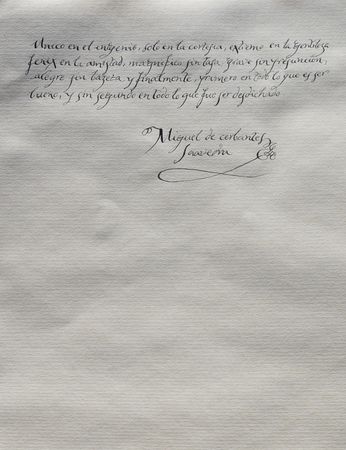 Unico en el ingenio, solo en la cortesia, extremo en la gentileza
fenix en la amistad, magnifico sin tasa, grave sin presunción,
alegre sin bajeza y finalmente, primero en todo lo que es ser
bueno, y sin segundo en todo lo que fue ser desdichado.
Miguel de cerbantes
Saavedra